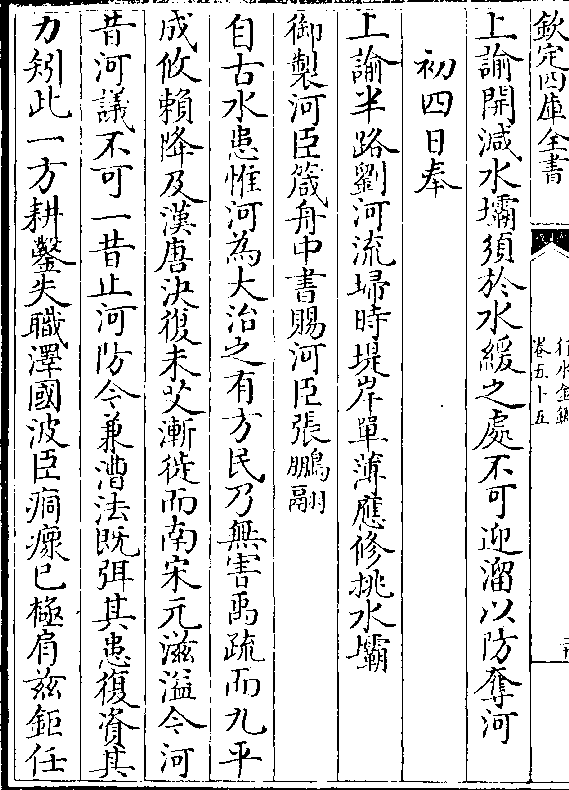 欽定四庫全書
行水金鑑
卷五十五
上諭開減水壩須於水緩之處不可迎溜以防奪河
初四日奉
上諭半路劉河流埽時堤岸單薄應修挑水壩
御製河臣箴舟中書賜河臣張鵬翮
自古水患惟河為大治之有方民乃無害禹疏而九平
成攸賴降及漢唐決復未艾漸徙而南宋元滋溢今河
昔河議不可一昔止河防今兼漕法既弭其患復資其
力矧此一方耕鑿失職澤國波臣痌瘝已極肩玆鉅任